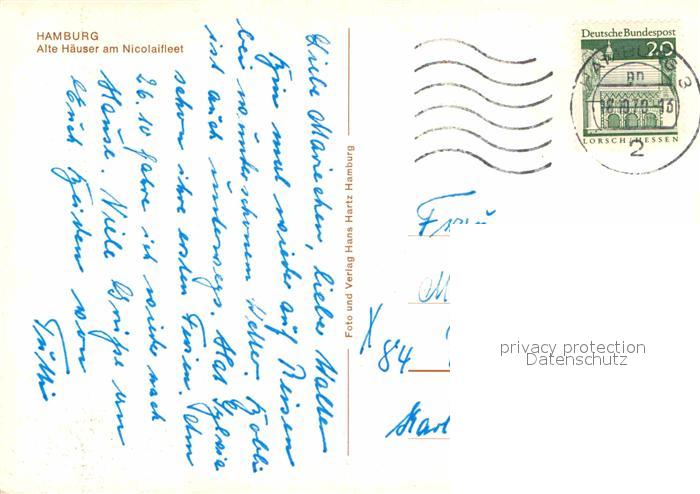 HAMBURG
Alte Häuser am Nicolaifleet
Liebe Mariechen, liebe Walter
Bin mal wieder auf Reisen
bei wunderschönem Wetter.
ist auch unterwegs. Hat Sylvia
schon ihre ersten Ferien. Am
26.10 fahre ich wieder nach
Hause. Viele Grüße an
Euch beiden von
Foto und Verlag Hans Hartz Hamburg
Deutsche Bundespost
20
HAMBURG 3
18.10.70-13
2
LORSCH/HESSEN
Frau
M
84
privacy protection
Datenschutz